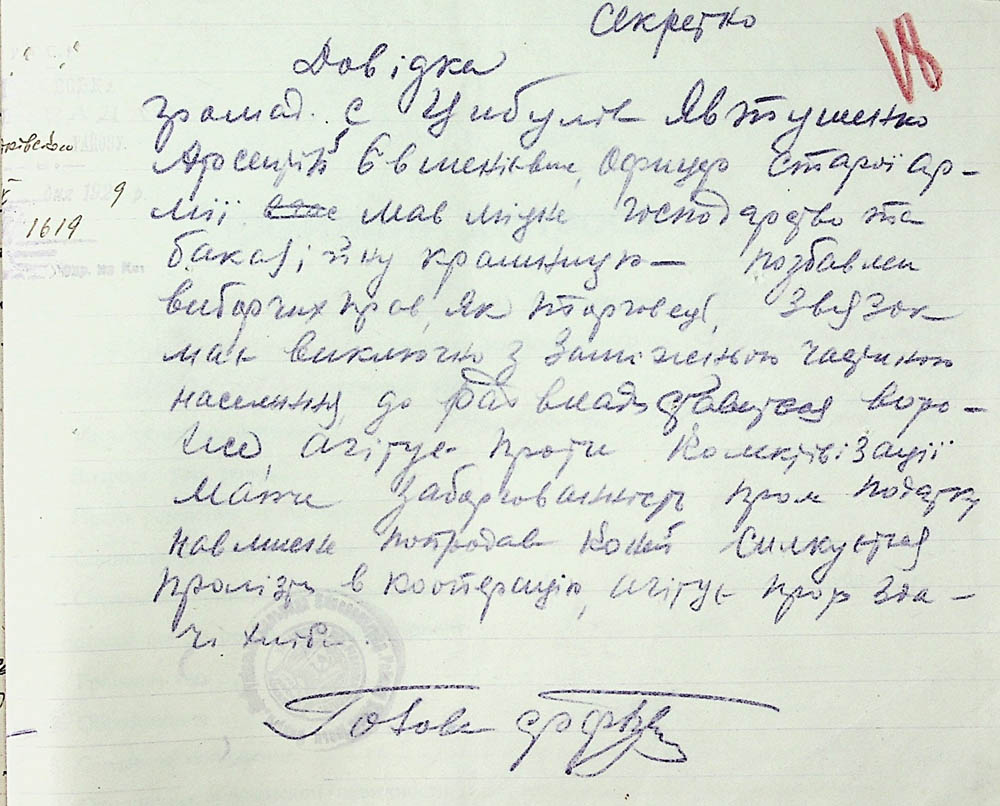 Секретно
18
Довідка
громад. с Цибулів Явтушенко
Арсентій Офицер старої ар-
мії мав міцне господарство та
бакалійну крамницю — позбавлен
виборчих прав, як торговець, звязок
має виключно з заможньою частиною
населення до Рад влади ставиться воро-
же, агітує проти колктівізації
маючи заборгованність пром податку
навмисне попродав коней силкується
пролізти в кооперацію, агітує прот зда-
чі хліба.
Голова
1619
9